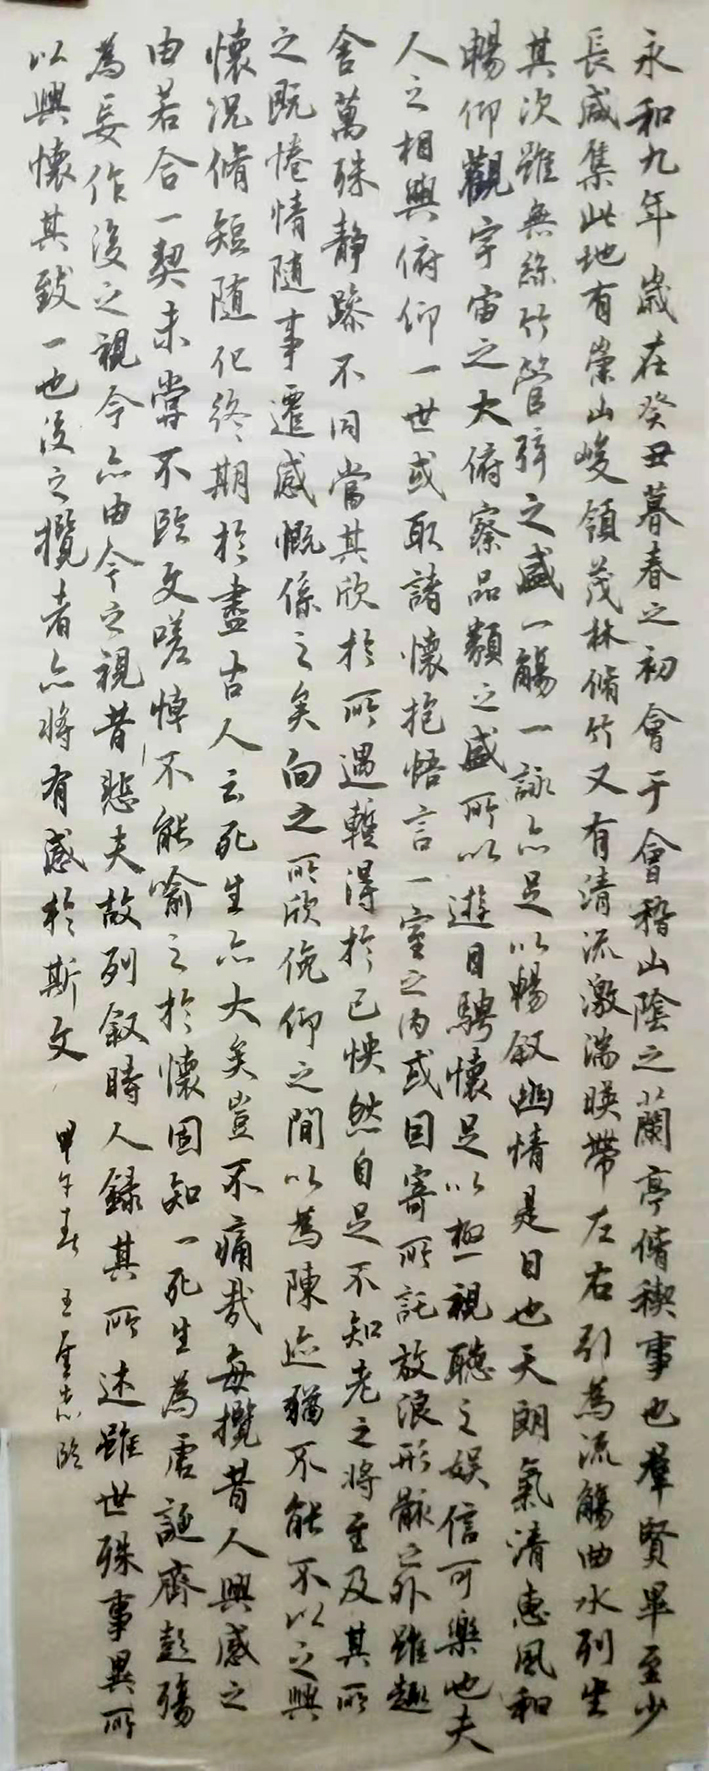 永和九年歲在癸丑暮春之初會于會稽山陰之蘭亭脩禊事也羣賢畢至少
長咸集此地有崇山峻領茂林脩竹又有清流激湍暎帶左右引為流觴曲水列坐
其次雖無絲竹管弦之盛一觴一詠亦足以暢敘幽情是日也天朗氣清惠風和
暢仰觀宇宙之大俯察品類之盛所以遊目騁懷足以極視聽之娛信可樂也夫
人之相與俯仰一世或取諸懷抱悟言一室之內或因寄所託放浪形骸之外雖趣
舍萬殊靜躁不同當其欣於所遇暫得於己怏然自足不知老之將至及其所
之既惓情隨事遷感慨係之矣向之所欣俛仰之間以為陳迹猶不能不以之興
懷況脩短隨化終期於盡古人云死生亦大矣豈不痛哉每攬昔人興感之
由若合一契未嘗不臨文嗟悼不能喻之於懷固知一死生為虛誕齊彭殤
為妄作後之視今亦由今之視昔悲夫故列敘時人錄其所述雖世殊事異所
以興懷其致一也後之攬者亦將有感於斯文
甲午春 王臨